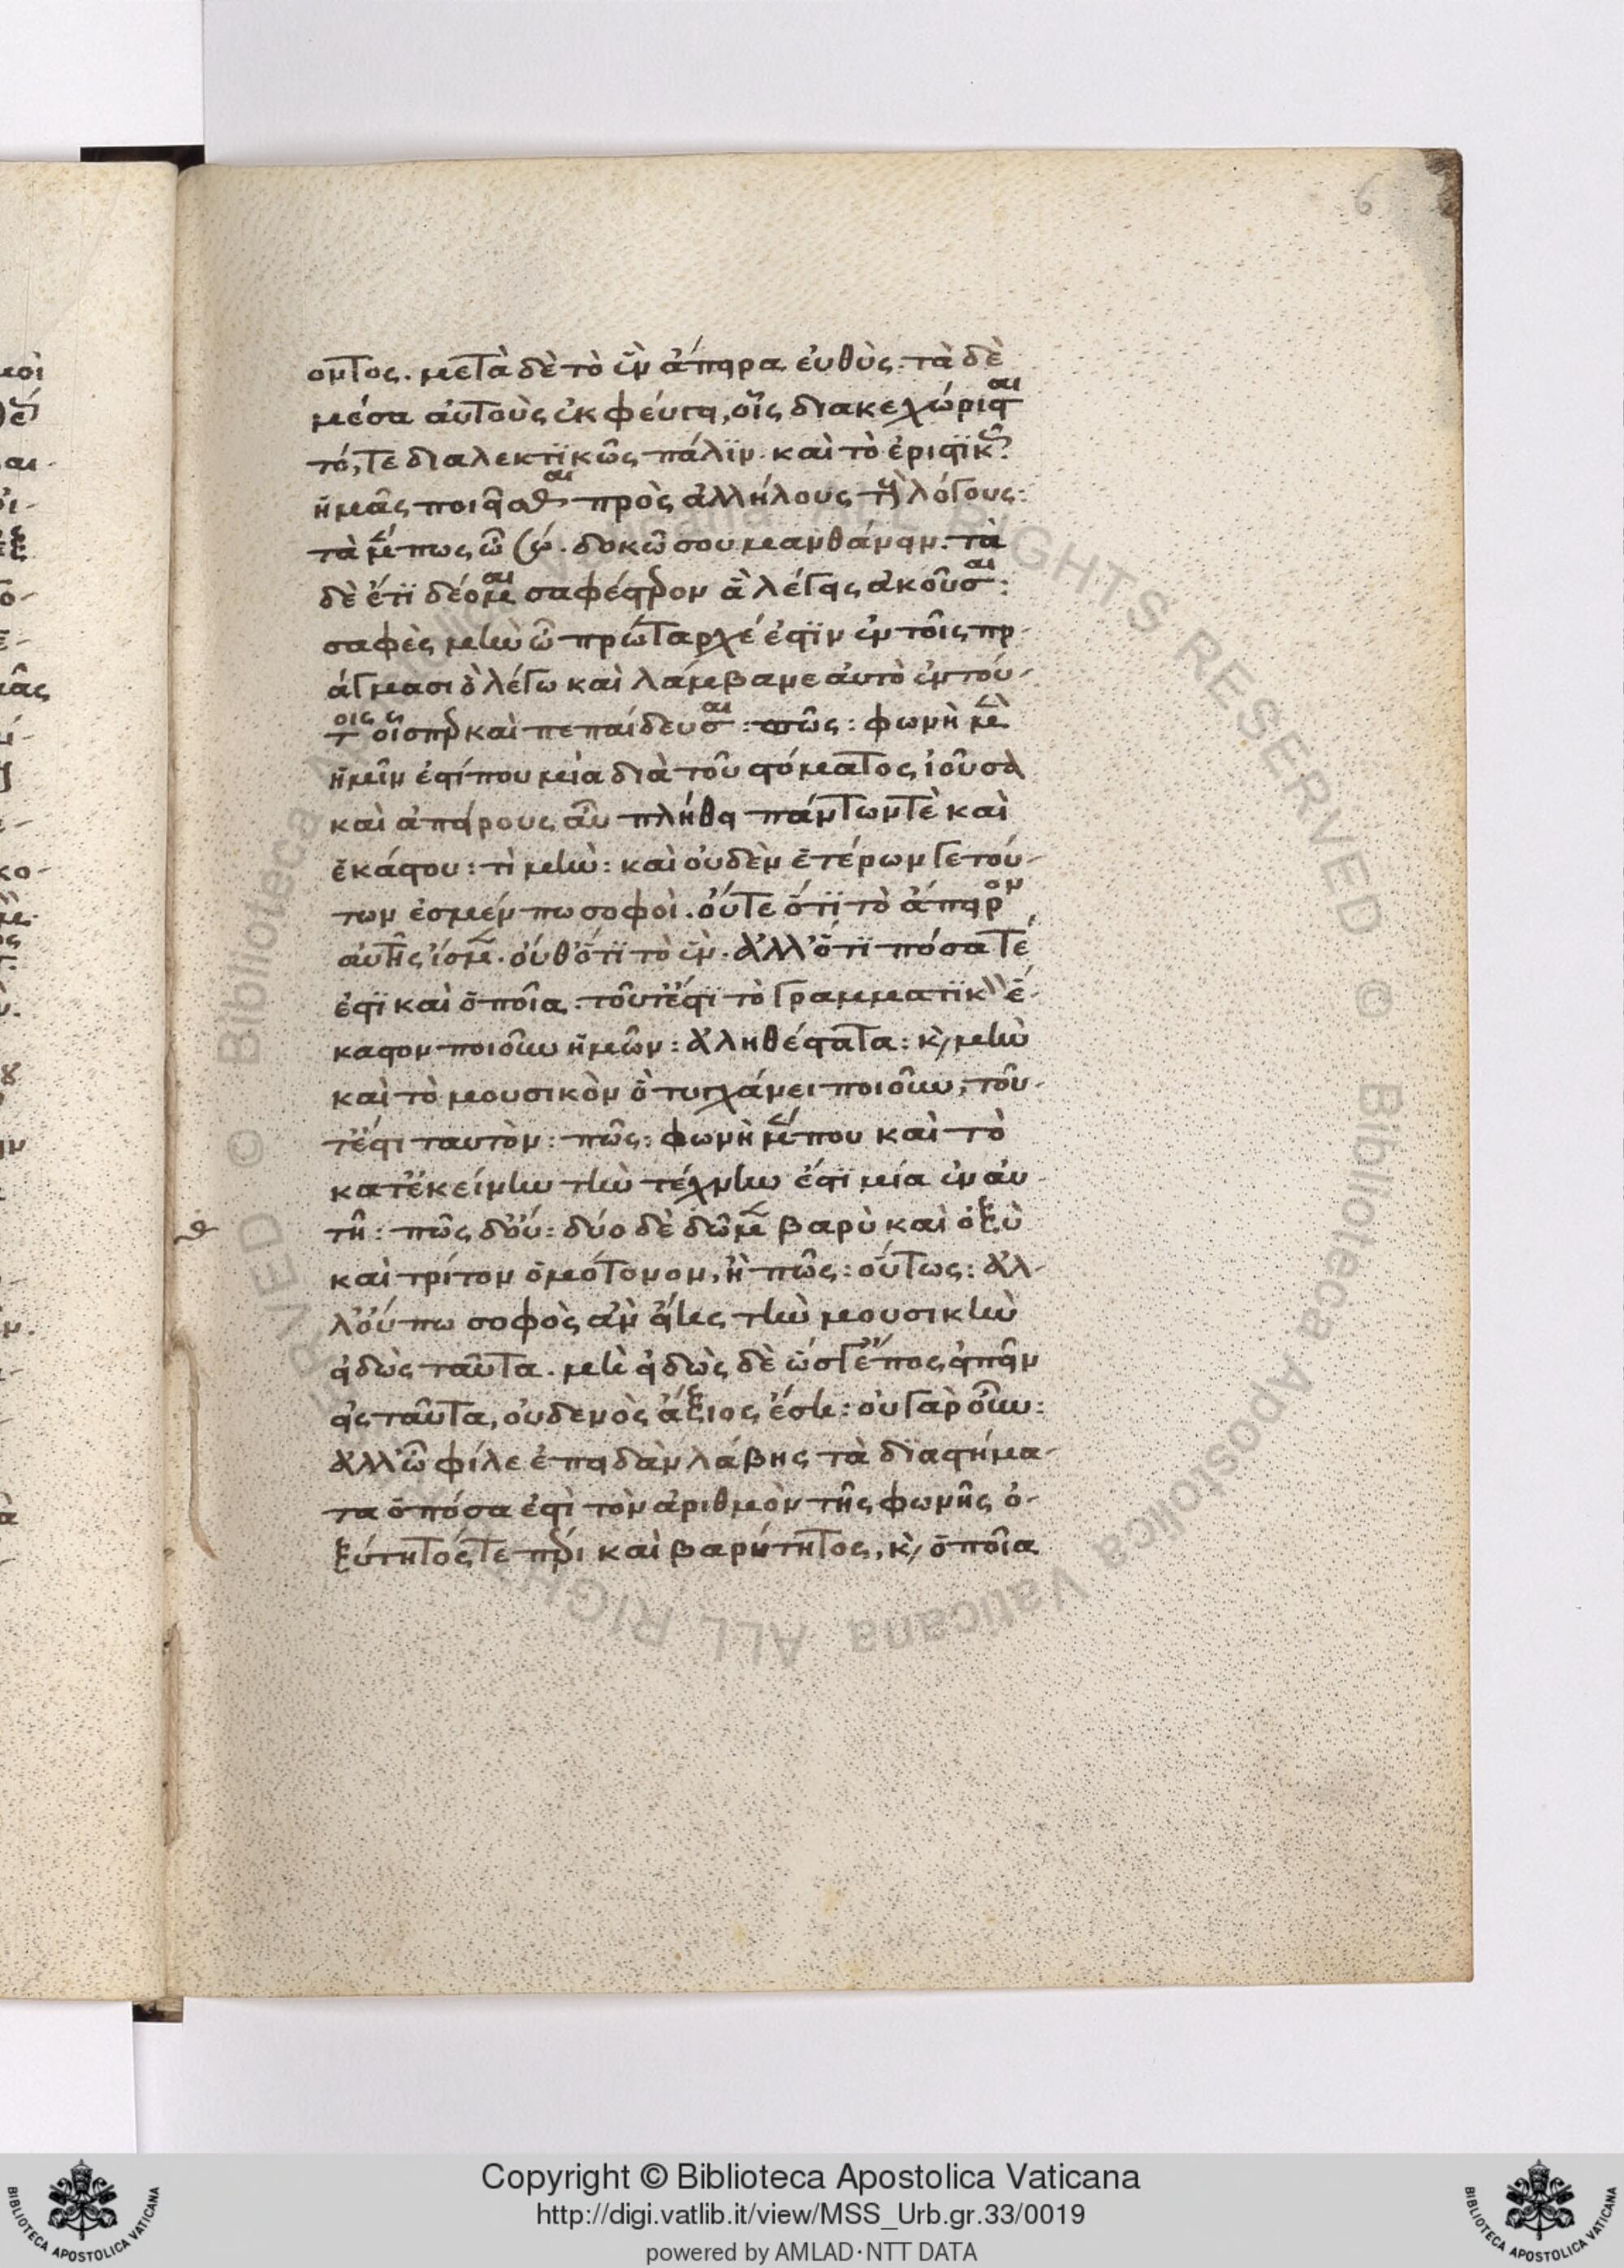 6
οντος. μετὰ δὲ τὸ ἓν ἄπειρα εὐθὺς. τὰ δὲ
μέσα αὐτοὺς ἐκφεύγει, οἷς διακεχώρισται
τό, τε διαλεκτϊκῶς πάλϊν. καὶ τὸ ἐριστϊκῶς
ἡμᾶς ποιεῖσθαι πρὸς ἀλλήλους τοὺς λόγους:
τὰ μέν πως ὦ σώ. δοκῶ σου μανθάνειν. τὰ
δὲ ἔτϊ δέομαι σαφέστερον ἃ λέγεις ἀκοῦσαι:
σαφὲς μὴν ὦ πρώταρχέ ἐστϊν ἐν τοῖς πρ-
άγμασι ὃ λέγω καὶ λάμβανε αὐτὸ ἐν τού-
τοις οἷσπερ καὶ πεπαίδευσαι: πῶς: φωνὴ μὲν
ἡμῖν ἐστί που μία διὰ τοῦ στόματος ἰοῦσα
καὶ ἄπειρους αὖ πλήθει πάντων τὲ καὶ
ἑκάστου: τί μήν: καὶ οὐδὲν ἑτέρων γε τού-
των ἐσμέν πω σοφοὶ. οὔτε ὅτϊ τὸ ἄπειρον
αὐτῆς ἴσμεν. οὔθ' ὅτϊ τὸ ἕν. ἀλλ' ὅτϊ πόσα τέ
ἐστϊ καὶ ὁποῖα. τοῦτ' ἔστϊ τὸ γραμματϊκὸν ἕ-
καστον ποιοῦν ἡμῶν: ἀληθέστατα: κ, μὴν
καὶ τὸ μουσικὸν ὃ τυγχάνει ποιοῦν, τοῦ-
τ' ἔστι ταυτὸν: πῶς: φωνὴ μέν που καὶ τὸ
κατ' ἐκείνην τὴν τέχνην ἔστϊ μία ἐν αὐ-
τῆ: πῶς δ' οὔ: δύο δὲ δῶμεν βαρὺ καὶ ὀξὺ
καὶ τρίτον ὁμότονον, ἢ πῶς: οὕτως: ἀλ-
λ' οὔπω σοφὸς ἂν εἴης τὴν μουσικὴν
εἰδὼς ταῦτα. μὴ εἰδὼς δὲ ὥς γ' ἔπος εἰπεῖν
εἰς ταῦτα, οὐδενὸς ἄξιος ἔση: οὐ γὰρ οὖν:
ἀλλ' ὦ φίλε ἐπειδὰν λάβης τὰ δϊαστήμα-
τα ὁπόσα ἐστὶ τὸν ἀριθμὸν τῆς φωνῆς ὀ-
ξύτητός τε πέρι καὶ βαρύτητος, κ, ὁποῖα
Copyright © Biblioteca Apostolica Vaticana
http://digi.vatlib.it/view/MSS_Urb.gr.33/0019
powered by AMLAD·NTT DATA